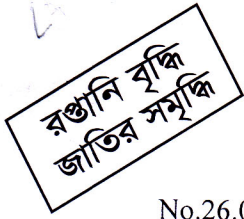 রপ্তানি বৃদ্ধি
জাতির সমৃদ্ধি
No.26.0